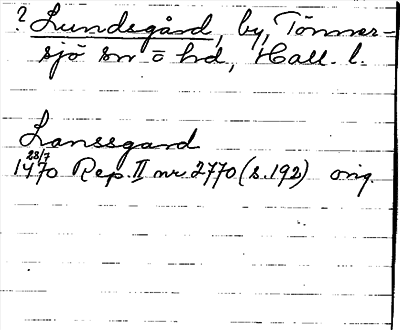 ? Lundsgård, by, Tönner-
sjö sn o hd, Hall. l.
Lanssgard
28/7
1470 Rep. II nr. 2770 (s. 192) orig.